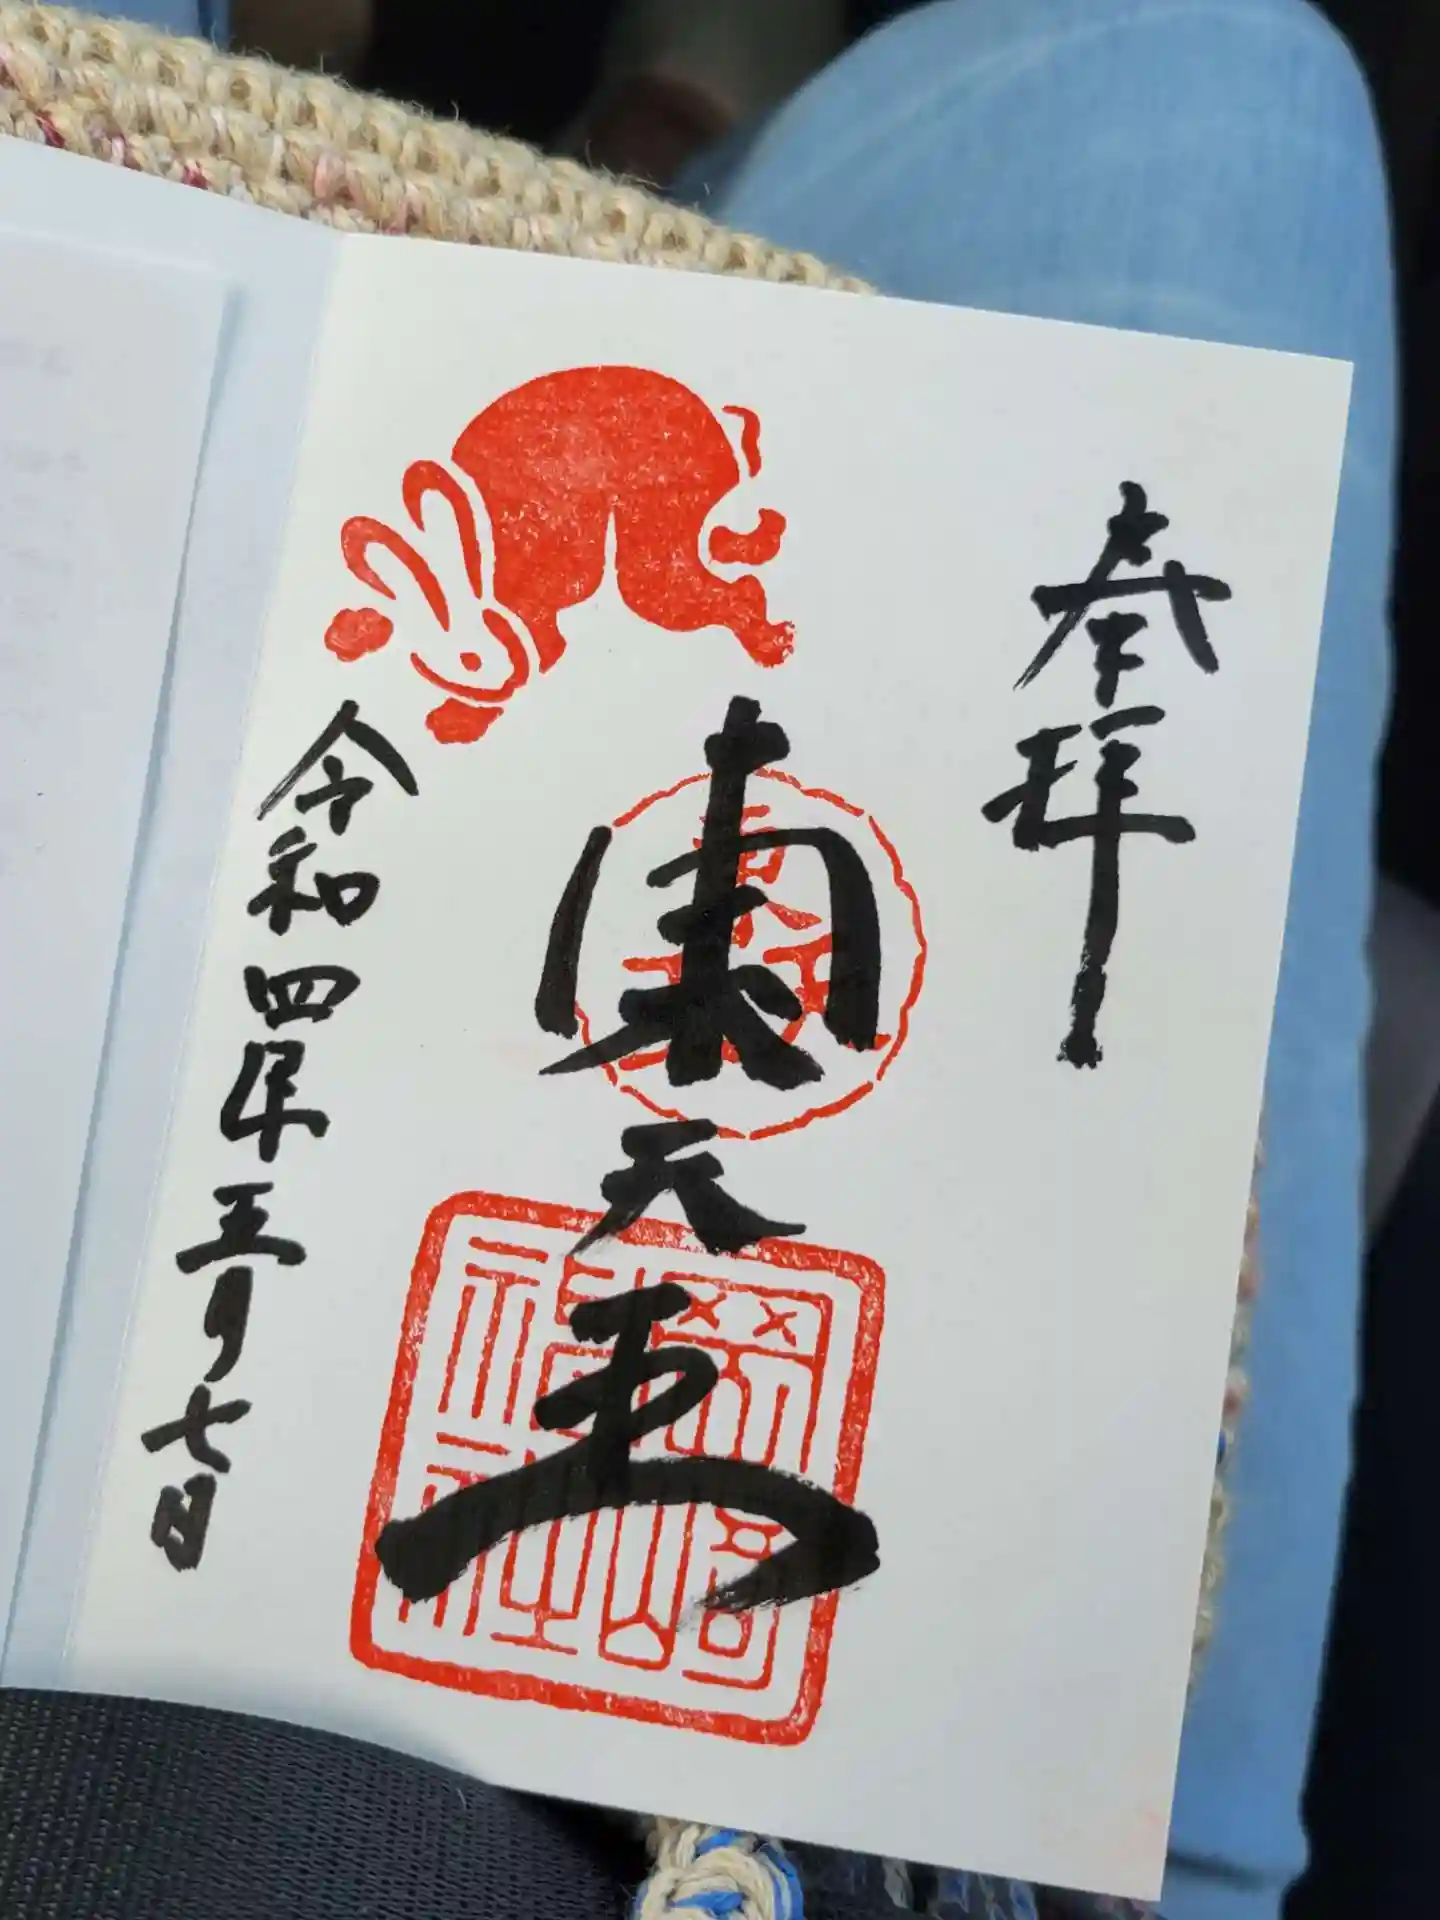 奉拝
東天王
令和四年五月七日